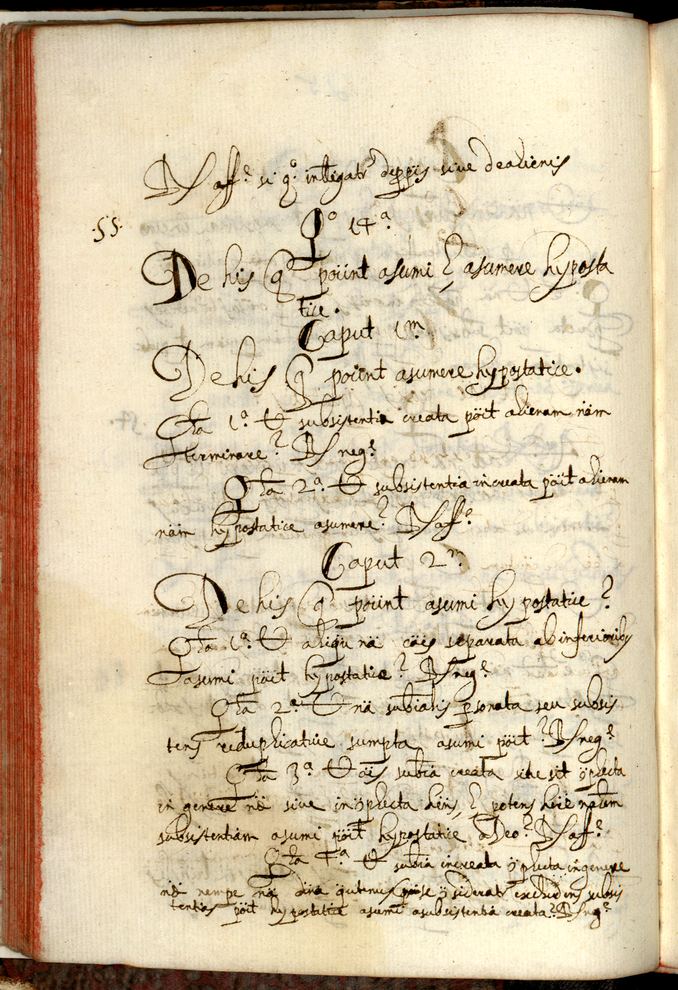 Rs aff.e si q.o intligatr de ppijs sive de alienis
.55.
Q.o 14.a
De his q poūnt asumi, ? asumere hyposta
tice.
Caput 1.m
De his q poūnt asumere hypostatice.
Qta 1.a Vt subsistentia creata pöit alienam näm
terminare? Rs neg.e
Qta 2.a Vt subsistentia increata pöit alienam
näm hypostatice asumere? Rs aff.e
Caput 2.m
De his q poūnt asumi hypostatice?
Qta 1.a Vt aliqu nä cöis separata ab inferioribs
asumi pöit hypostatice? Rs neg.e
Qta 2.a Vt nä subialis psonata seu subsis
tens reduplicative sumpta asumi pöit? Rs neg.e
Qta 3.a Vt öis subia creata sive sit öpleta
in genere næ sive inöpleta hens, ? potens hëre
subsistentiam asumi pöit hypostatice a Deo? Rs aff.e
Qta 4.a Vt subia increata öpleta in genere
næ nempe nä dina qutenus öiderat subsis
tentias pöit hypostatice asumi a subsistentia creata? Rs neg.e